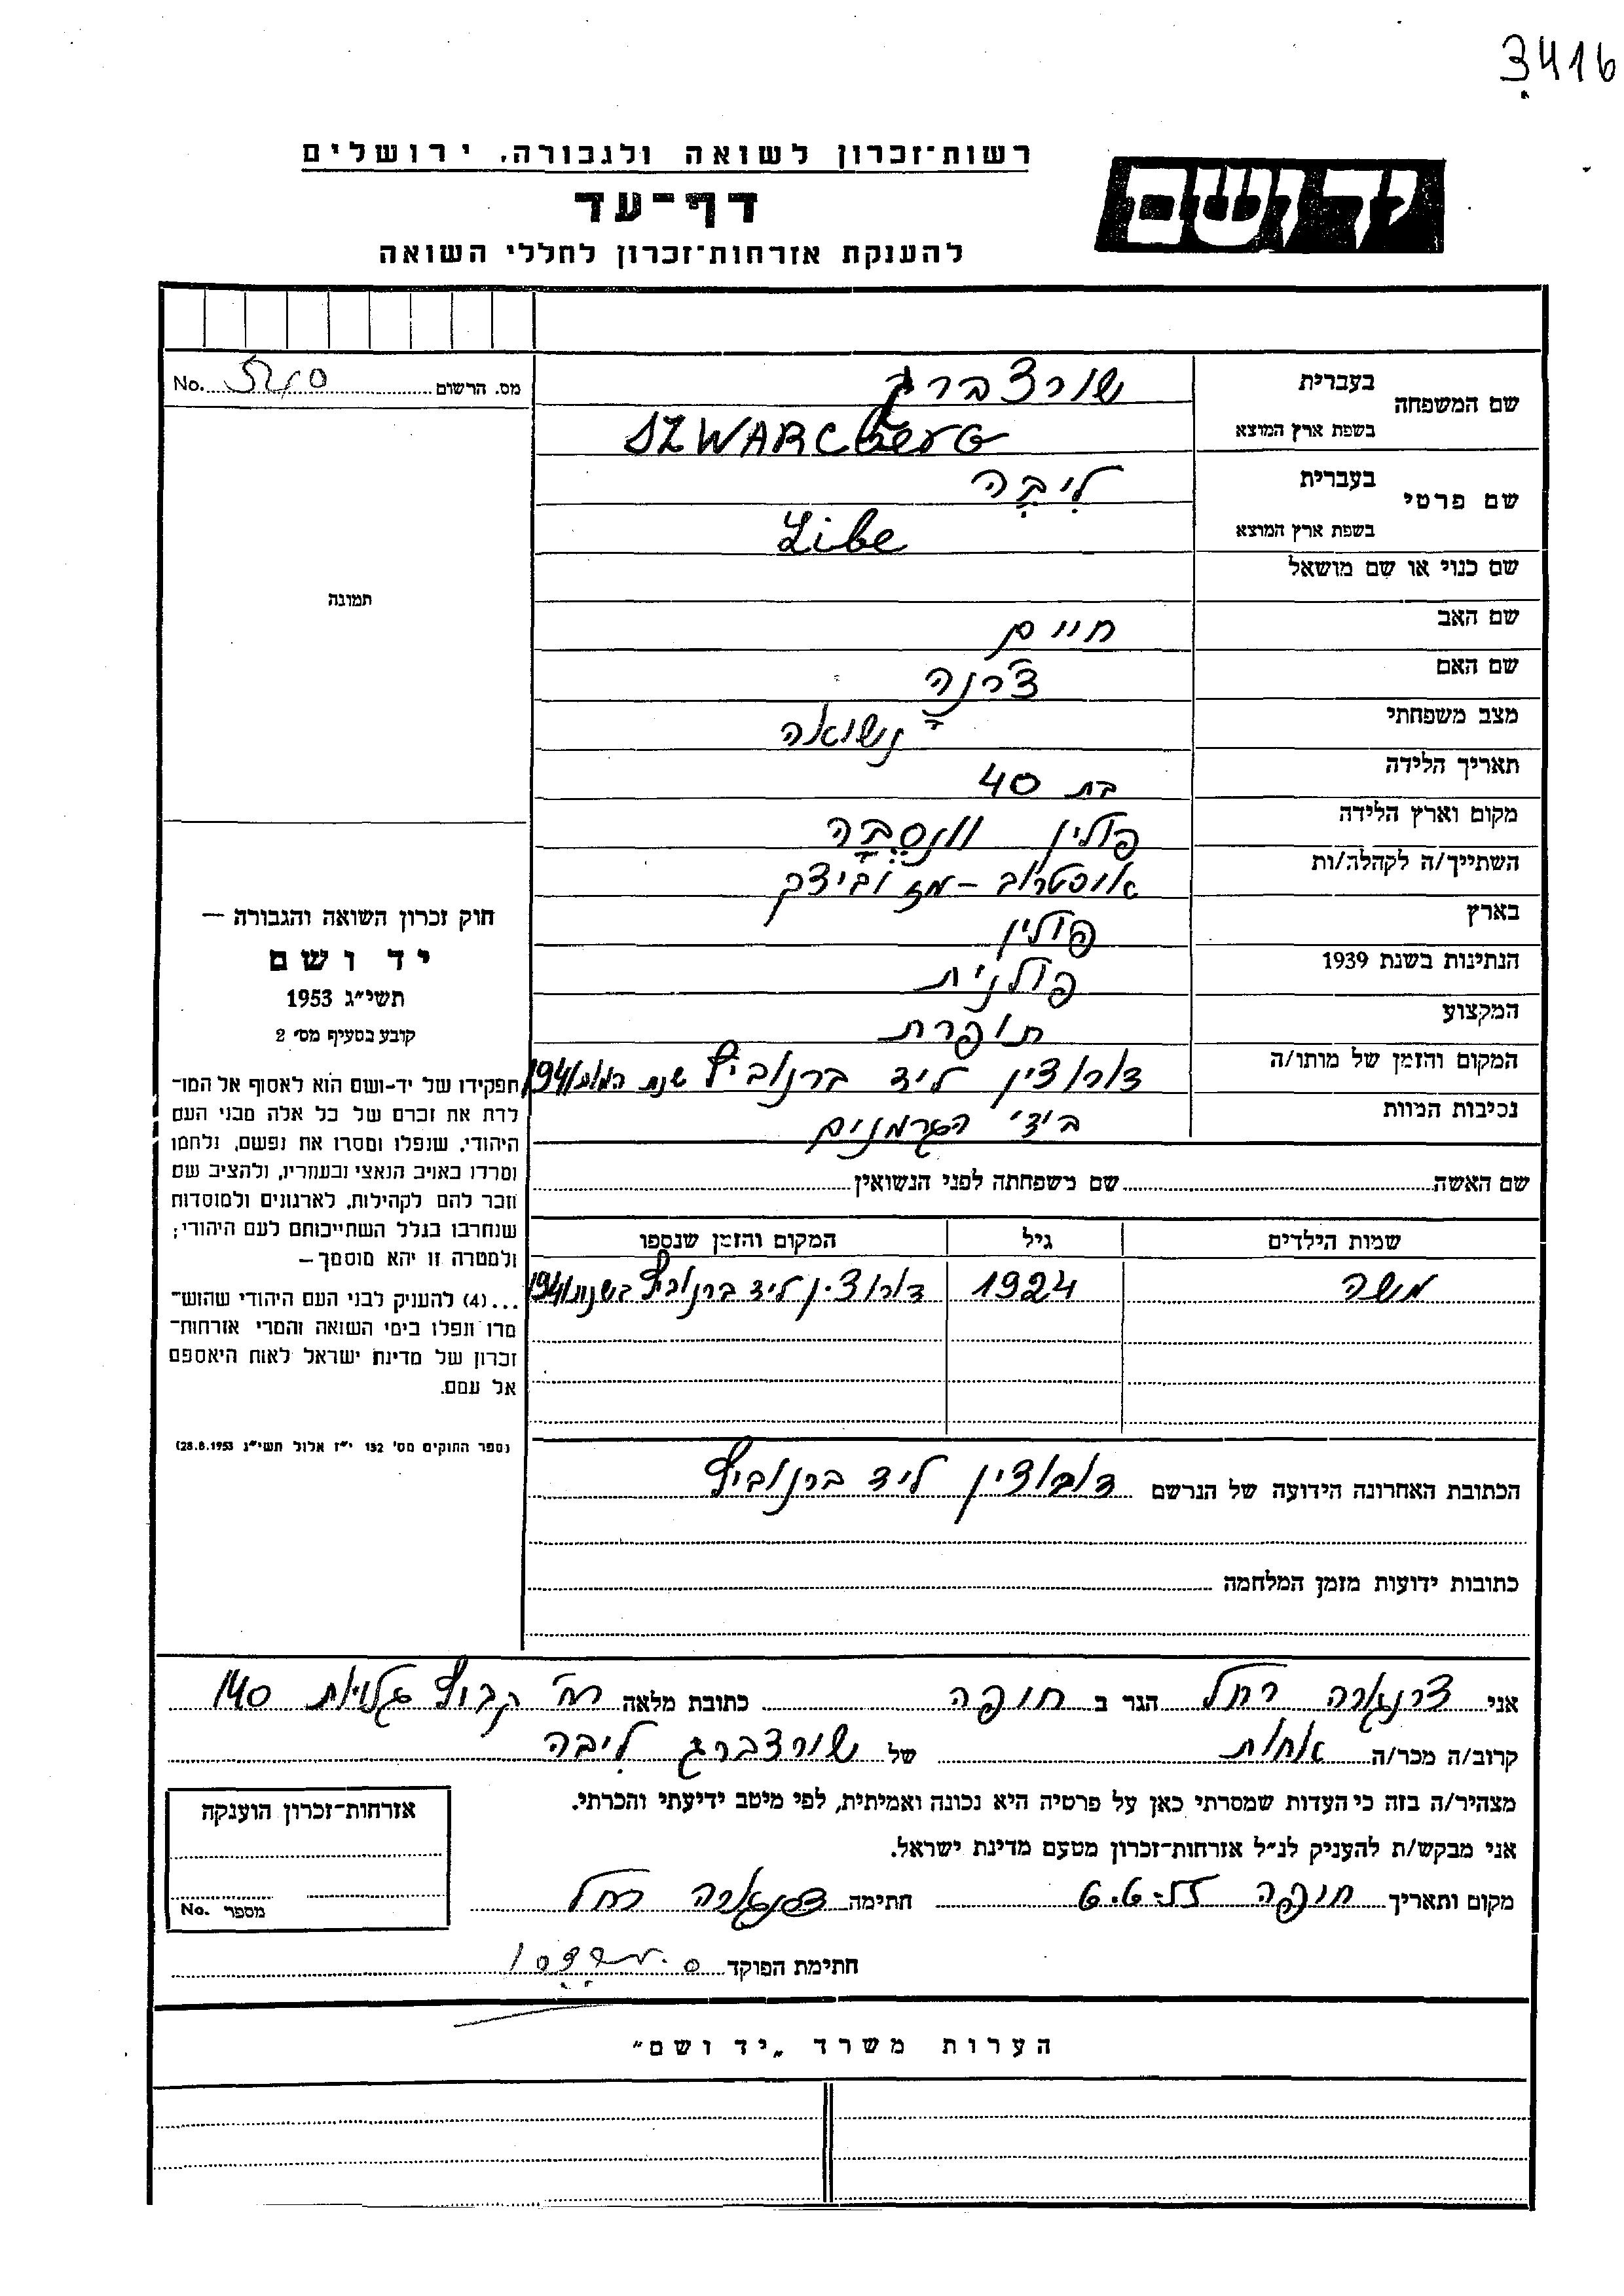 3416
רשות־זכרון לשואה ולגבורה, ירושלים
יד ושם
דף־עד
להענקת אזרחות־זכרון לחללי השואה
מס. הרשום No.
שם המשפחה בעברית שורצברג
בשפת ארץ המוצא SZWARCBERG
שם פרטי בעברית לִיבָּה
בשפת ארץ המוצא Libe
שם כנוי או שם מושאל
שם האב חיים
שם האם צ'רנה
מצב משפחתי נשואה
תאריך הלידה בת 40
מקום וארץ הלידה פולין
השתייך/ה לקהלה/ות אוסטרוב - מזוביצק
בארץ פולין
הנתינות בשנת 1939 פולנית
המקצוע תופרת
המקום והזמן של מותו/ה ליד ברנוביץ שנת 1941
נסיבות המוות בידי הגרמנים
תמונה
חוק זכרון השואה והגבורה —
יד ושם
תשי"ג 1953
קובע בסעיף מס' 2
תפקידו של יד-ושם הוא לאסוף אל המו־
לדת את זכרם של כל אלה מבני העם
היהודי, שנפלו ומסרו את נפשם, נלחמו
ומרדו באויב הנאצי ובעוזריו, ולהציב שם
וזכר להם לקהילות, לארגונים ולמוסדות
שנחרבו בגלל השתייכותם לעם היהודי;
ולמטרה זו יהא מוסמך—
...(4) להעניק לבני העם היהודי שהוש־
מדו ונפלו בימי השואה והמרי אזרחות־
זכרון של מדינת ישראל לאות היאספם
אל עמם.
(ספר החוקים מס' 132 י"ז אלול תשי"ג 28.8.1953)
שם האשה שם משפחתה לפני הנשואין
שמות הילדים גיל המקום והזמן שנספו
משה 1924 ליד ברנוביץ 1941
הכתובת האחרונה הידועה של הנרשם ליד ברנוביץ
כתובות ידועות מזמן המלחמה
אני רחל הגר ב חיפה כתובת מלאה רח' קבוץ גלויות 140
קרוב/ה מכר/ה אחות של שורצברג לִיבה
מצהיר/ה בזה כי העדות שמסרתי כאן על פרטיה היא נכונה ואמיתית, לפי מיטב ידיעתי והכרתי.
אני מבקש/ת להעניק לנ"ל אזרחות־זכרון מטעם מדינת ישראל.
מקום ותאריך חיפה חתימה רחל
אזרחות־זכרון הוענקה
מספר No.
חתימת הפוקד
הערות משרד „יד ושם"